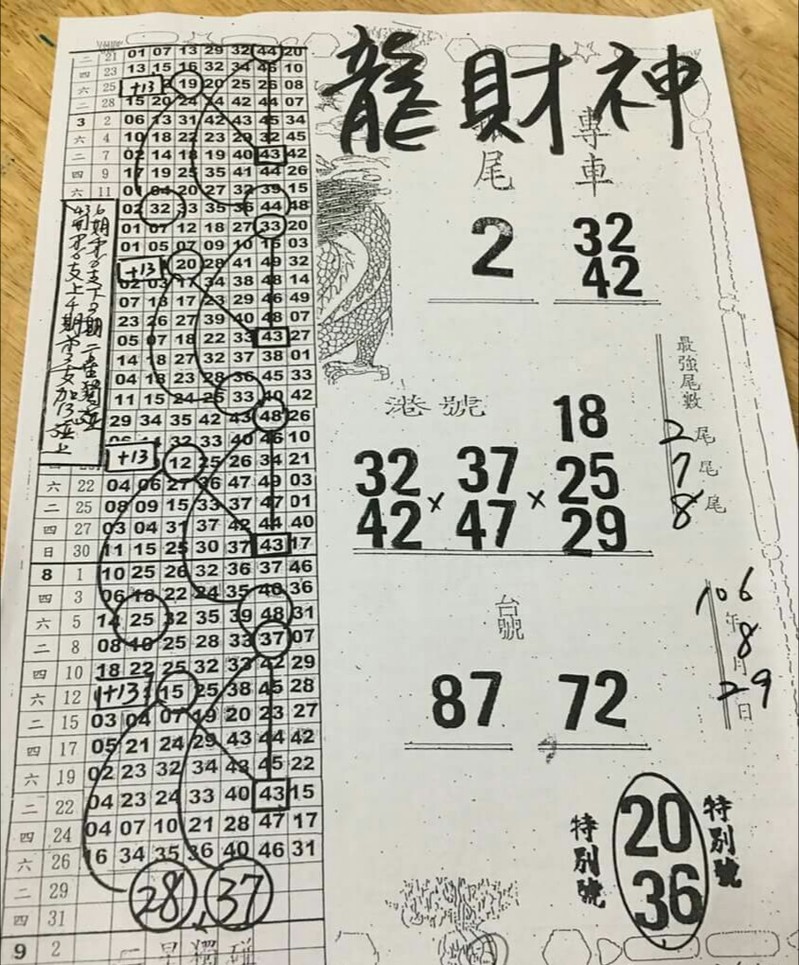 龍財神
二 21 01 07 13 29 32 44 20
四 23 13 15 16 32 34 45 10
六 25 +13 19 20 25 26 08
二 28 15 20 42 44 07
3 2 06 13 31 42 43 45 34
六 4 10 18 22 23 29 32 45
二 7 02 14 18 19 40 43 42
四 9 17 19 25 35 41 44 26
六 11 04 20 27 32 39 15
02 32 35 44 48
01 07 12 18 27 33 20
01 05 07 09 10 15 03
+13 20 28 41 49 32
02 03 17 34 38 48 14
07 13 17 23 29 46 49
23 26 27 39 40 48 07
05 07 18 22 33 43 27
14 18 27 32 37 38 01
04 18 23 28 36 45 33
11 15 24 25 33 40 42
29 34 35 42 43 48 26
32 33 40 46 10
+13 12 25 26 34 21
六 22 04 06 27 36 47 49 03
二 25 08 09 15 33 37 47 01
四 27 03 04 31 37 42 44 40
日 30 11 15 25 30 37 43 17
8 1 10 25 26 32 36 37 46
四 3 06 18 22 24 35 40 36
六 5 14 25 32 35 39 48 31
二 8 08 10 25 28 33 37 07
四 10 18 22 25 32 33 42 29
六 12 +13 15 25 38 45 28
二 15 03 04 07 19 20 23 27
四 17 05 21 24 29 43 44 42
六 19 02 23 32 34 43 45 22
二 22 04 23 24 33 40 43 15
四 24 04 07 10 21 28 47 17
六 26 16 34 35 36 40 46 31
二 29
四 31
28 37
9 2
尾
2
專車
32
42
最強尾數
2尾
7尾
8尾
港號
32 × 37 × 18
42 47 25
29
台號
87 72
106年
8月
29日
特別號
20
36
特別號